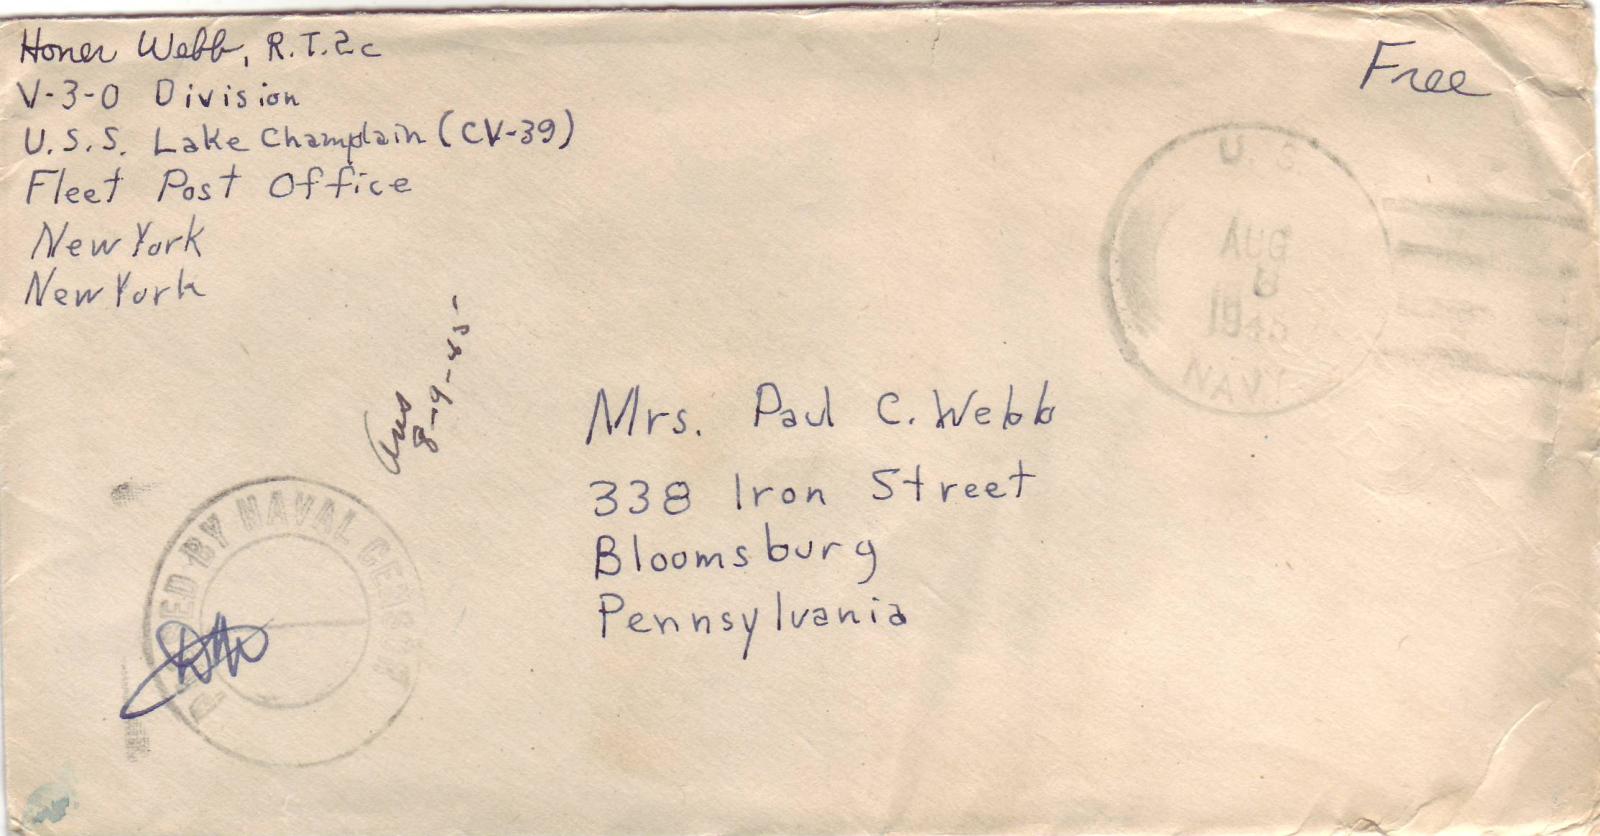 Honer Webb, R.T.2c
V-3-O Division
U.S.S. Lake Champlain (CV-39)
Fleet Post Office
New York
New York
Free
U.S.
AUG
1945
NAVY
Ans
8-9-45-
Mrs. Paul C. Webb
338 Iron Street
Bloomsburg
Pennsylvania
BY NAVAL CENSOR